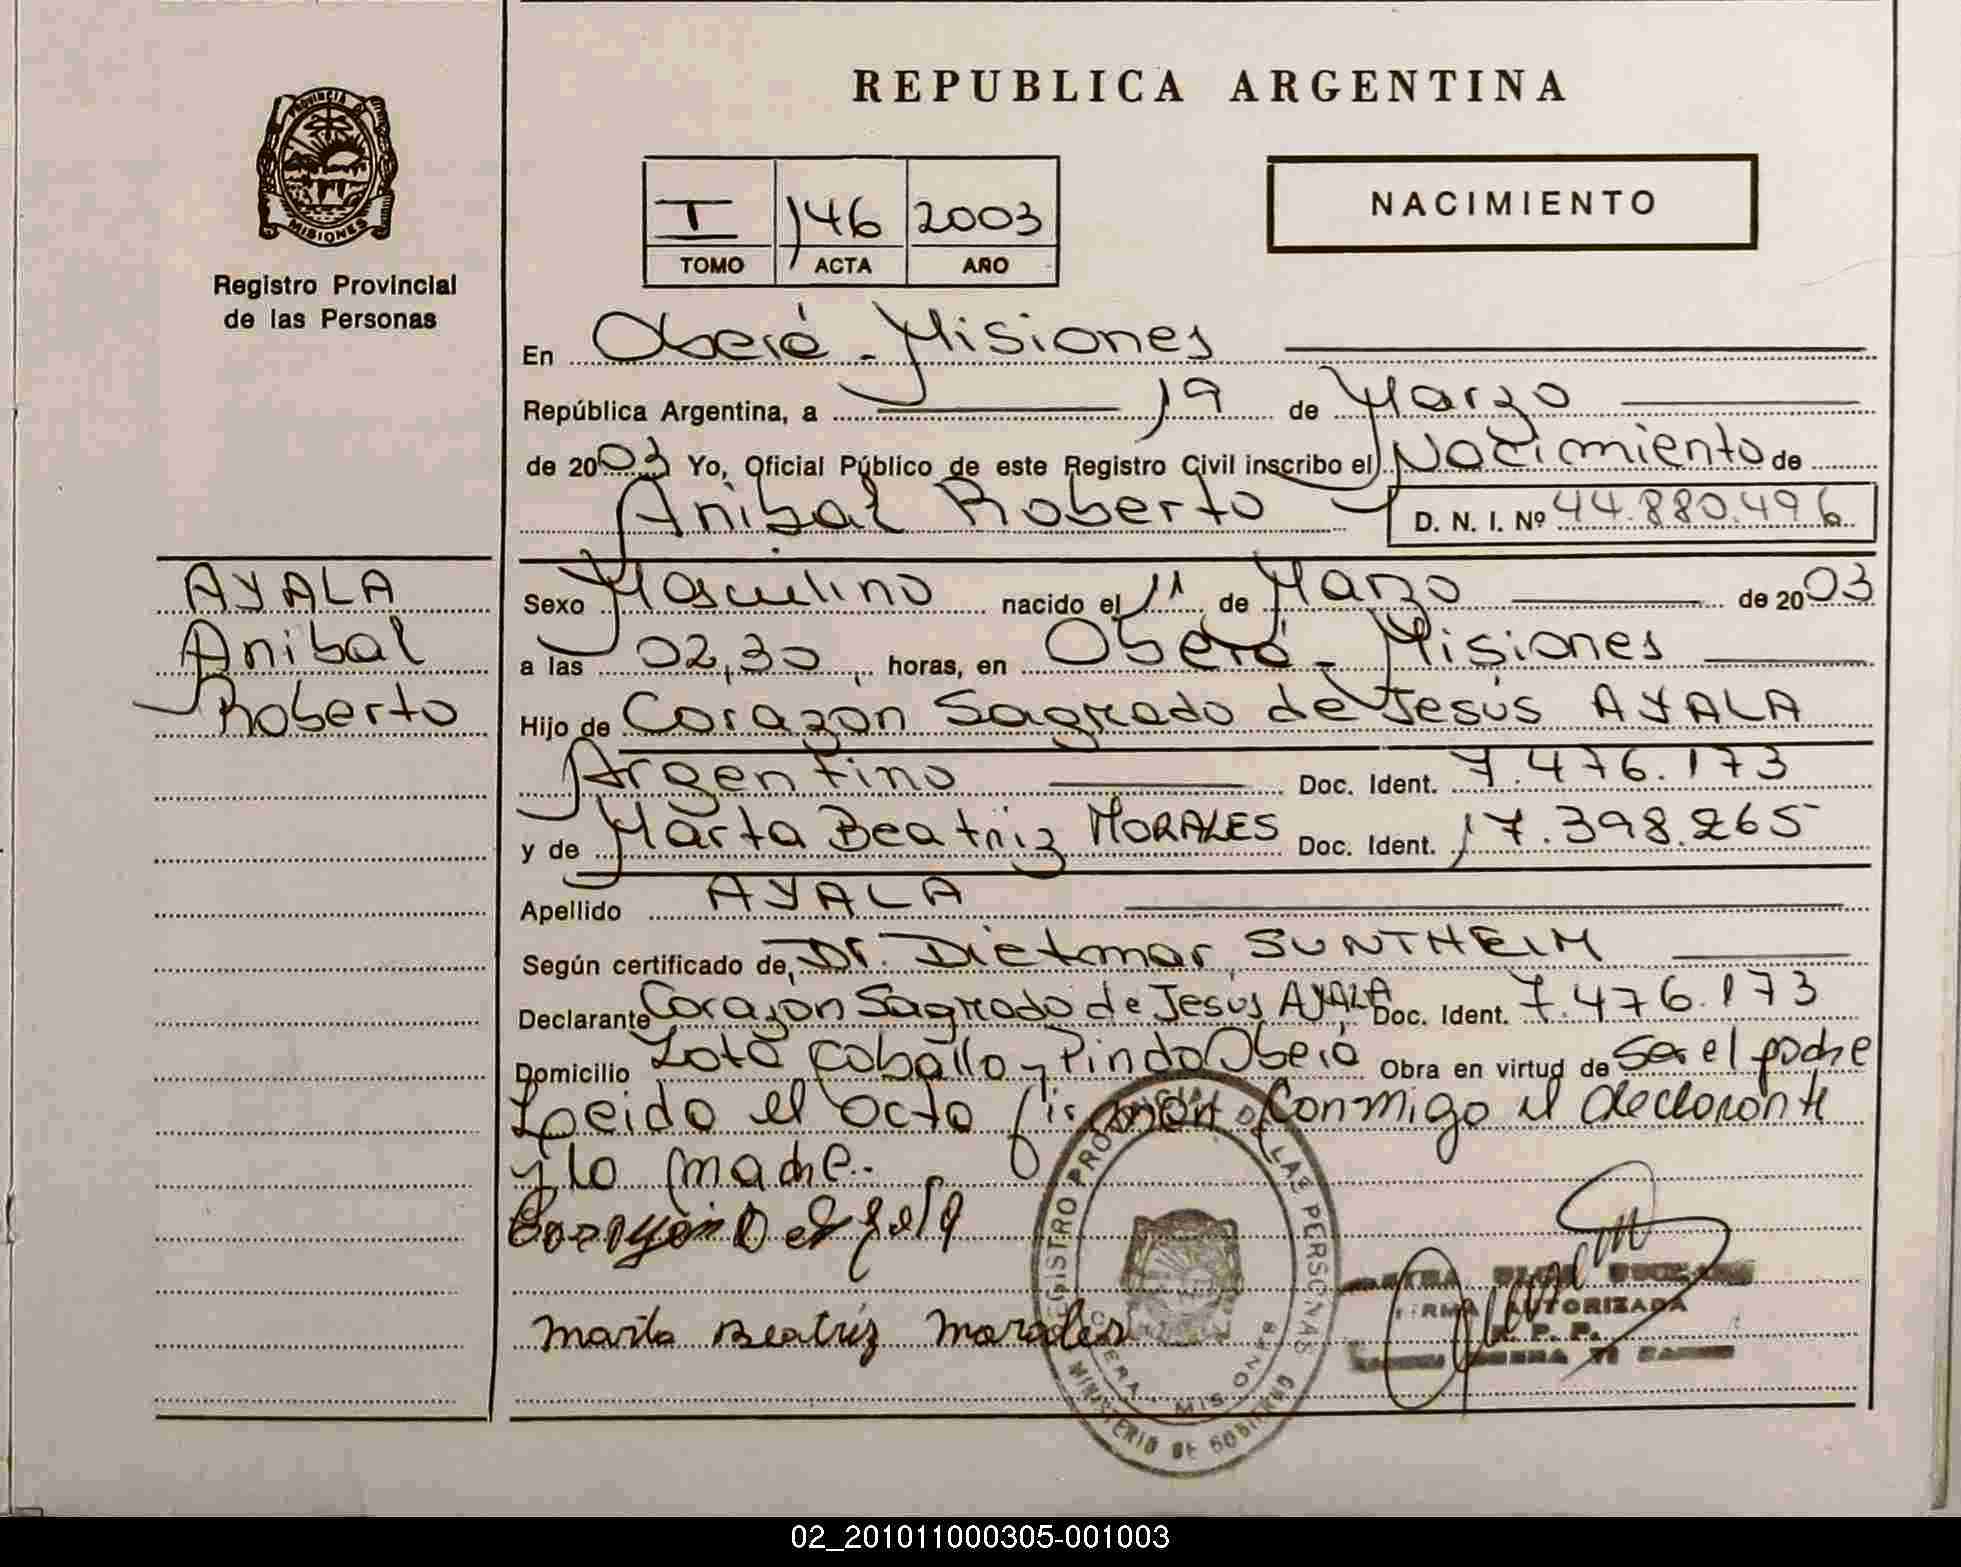 REPUBLICA ARGENTINA
PROVINCIA DE
MISIONES
Registro Provincial
de las Personas
I 146 2003
TOMO ACTA AÑO
NACIMIENTO
En Oberá - Misiones
República Argentina, a 19 de Marzo
de 2003 Yo, Oficial Público de este Registro Civil inscribo el Nacimiento de
Anibal Roberto D. N. I. Nº 44.880.496
AYALA
Anibal
Roberto
Sexo Masculino nacido el 11 de Marzo de 2003
a las 02,30 horas, en Oberá - Misiones
Hijo de Corazon Sagrado de Jesús AYALA
Argentino Doc. Ident. 7.476.173
y de Marta Beatriz MORALES Doc. Ident. 17.398.265
Apellido AYALA
Según certificado de, Dr. Dietmar SUNTHEIM
Declarante Corazon Sagrado de Jesús AYALA Doc. Ident. 7.476.173
Domicilio Lote Caballo y Pindo Oberá Obra en virtud de Ser el padre
Leido el acta firman conmigo el declarante
y la madre.-
Marta Beatriz Morales
REGISTRO PROVINCIAL DE LAS PERSONAS
MINISTERIO DE GOBIERNO
MISIONES
FIRMA AUTORIZADA
R. P. P.
02_201011000305-001003